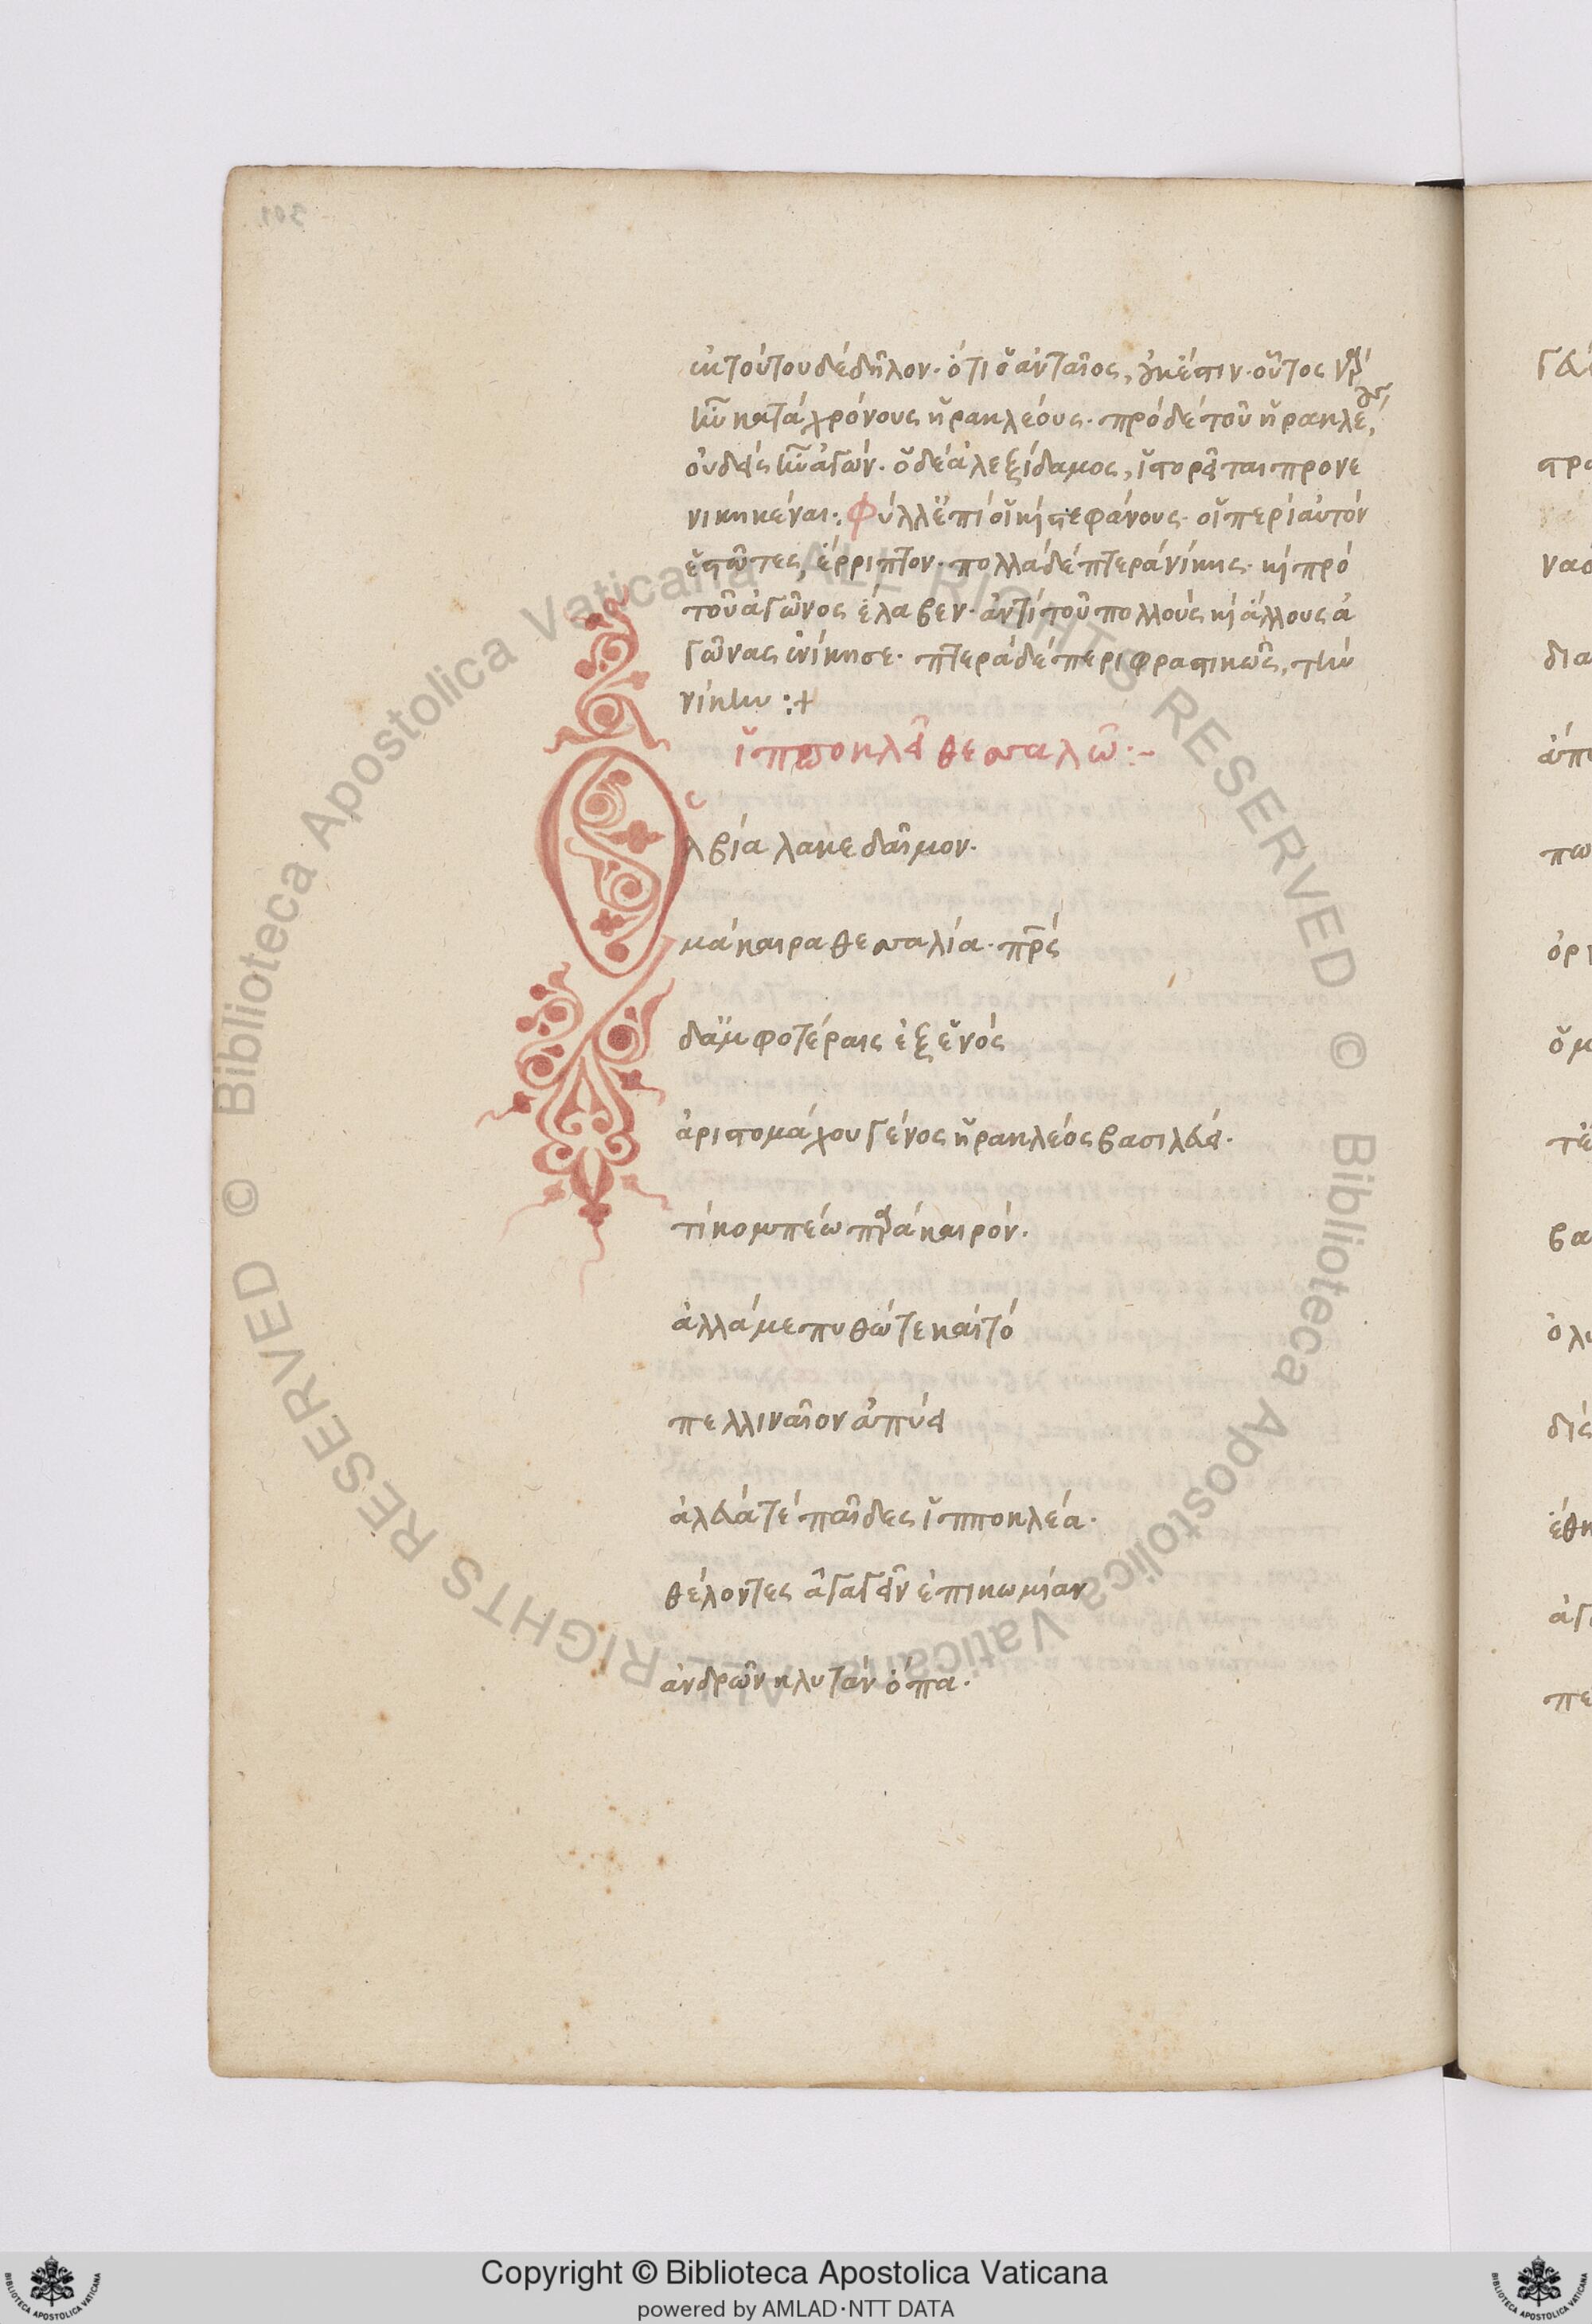 ἐκ τούτου δὲ δῆλον· ὅτι ὁ ἀνταῖος, οὐκ ἔστιν· οὗτος γὰρ
ἦν κατὰ χρόνους ἡρακλέους· πρὸ δὲ τοῦ ἡρακλέους,
οὐδεὶς ἦν ἀγών· ὁ δὲ ἀλεξίδαμος, ἱστορεῖται προνε
νικηκέναι: Φύλλ' ἔπι οἳ καὶ στεφάνους· οἱ περὶ αὐτὸν
ἑστῶτες, ἔρριπτον· πολλὰ δὲ πτερὰ νίκης· καὶ πρὸ
τοῦ ἀγῶνος ἔλαβεν· ἀντὶ τοῦ πολλοὺς καὶ ἄλλους ἀ
γῶνας ἐνίκησε· πτερὰ δὲ περιφραστικῶς, τὴν
νίκην :+
ἱπποκλεῖ θεσσαλῶ:-
Ὀλβία λακεδαῖμον·
μάκαιρα θεσσαλία· πατρὸς
δ' ἀμφοτέραις ἐξ ἑνὸς
ἀριστομάχου γένος ἡρακλέος βασιλεύει·
τί κομπέω παρὰ καιρόν·
ἀλλά με πυθώ τε καὶ τὸ
πελλιναῖον ἀπύει
ἀλεύα τε παῖδες ἱπποκλέα·
θέλοντες ἀγαγεῖν ἐπικωμίαν
ἀνδρῶν κλυτὰν ὄπα·
Copyright © Biblioteca Apostolica Vaticana
powered by AMLAD·NTT DATA